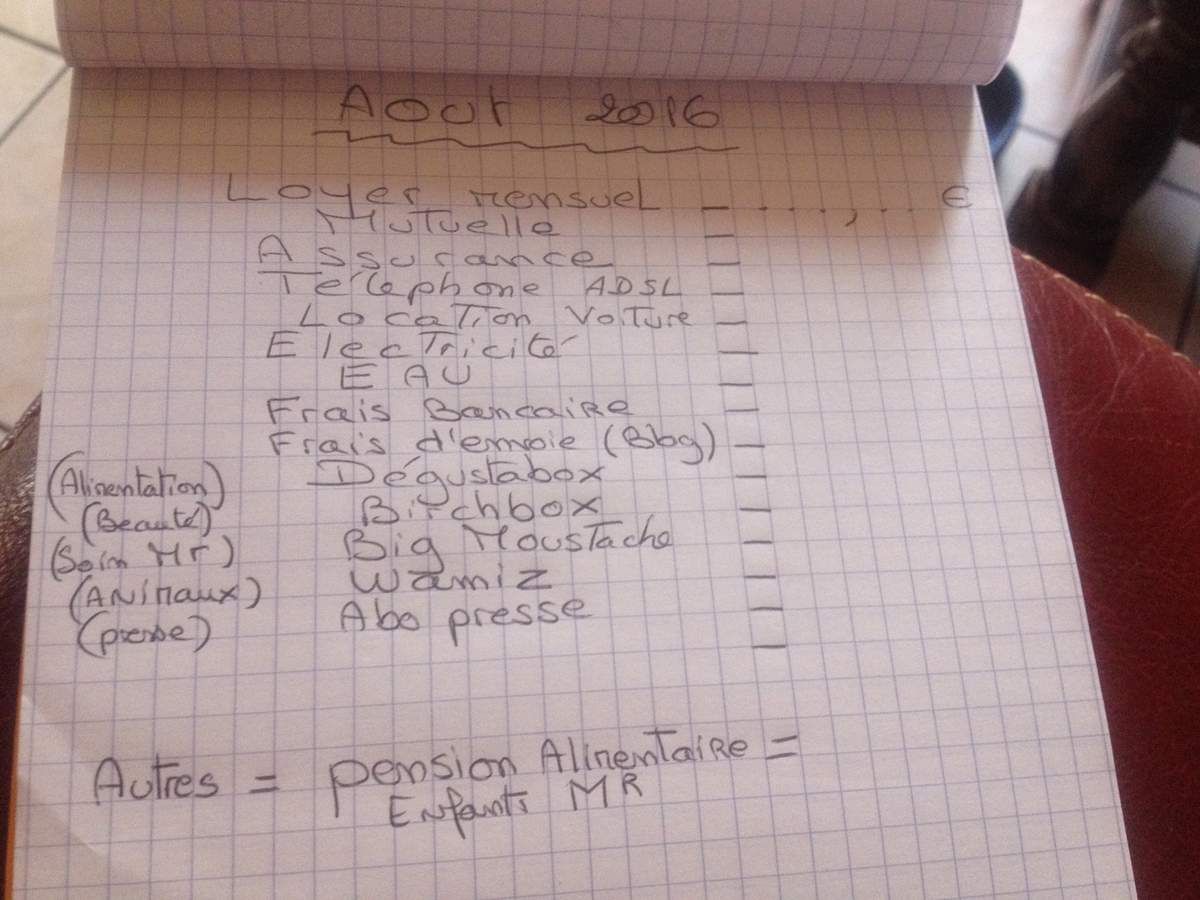 Aout 2016
Loyer mensuel - . . . . , . . . €
Mutuelle -
Assurance -
Téléphone ADSL -
Location Voiture -
Electricité -
EAU -
Frais Bancaire -
Frais d'envoie (Bbg) -
(Alimentation) Dégustabox -
(Beauté) Birchbox -
(Soin Mr) Big Moustache -
(ANIMAUX) Wamiz -
(presse) Abo presse -
-
Autres = pension Alimentaire =
Enfants MR